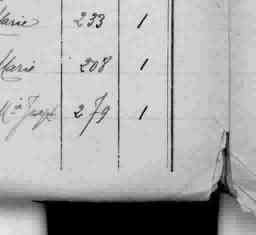 Marie 233 1
Marie 208 1
Mª Josph 279 1